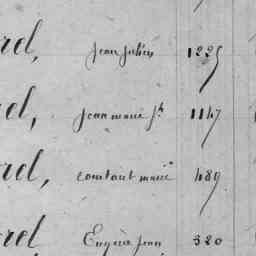 rel, Jean Julien 1225
rel, Jean marie fh 1147
rel, constant marie 489
rel Eugène Jean 320